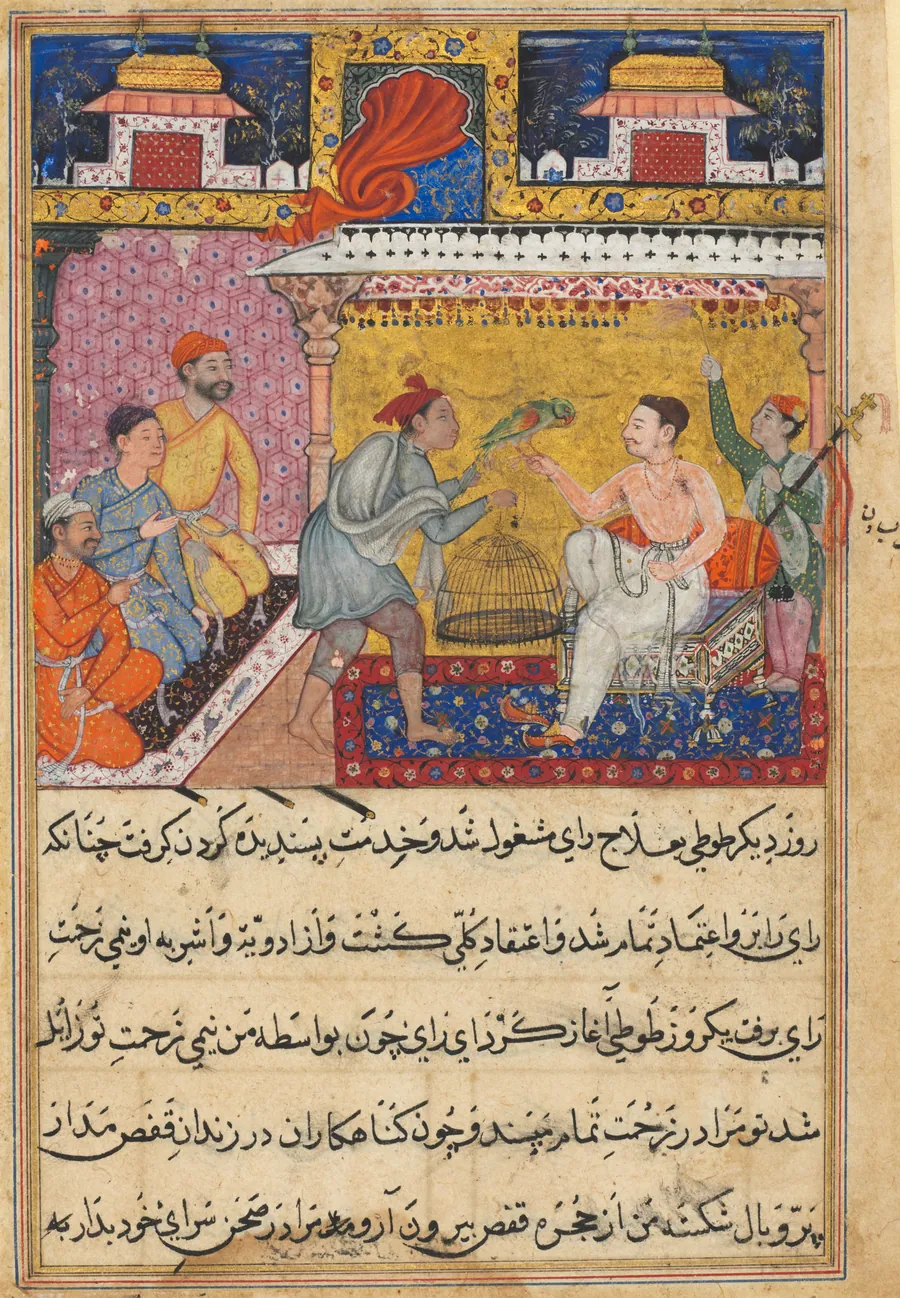 روز دیکر طوطی بعلاج رای مشغول شد و خدمتِ پسندیده کردن کرفت چنانکه
رای را برو اعتمادِ تمام شد و اعتقادِ کلّی کشت و از ادویه و اشربه او نیمی زحمتِ
رای برفت یکروز طوطی آغاز کرد ای رای چون بواسطه من نیمی زحمتِ تو زایل
شد تو مرا در زحمتِ تمام مپسند و چون کناهکاران در زندانِ قفص مدار
پر و بال شکسته من از حجره قفص بیرون آر و مرا در صحن سرایِ خود بدار به